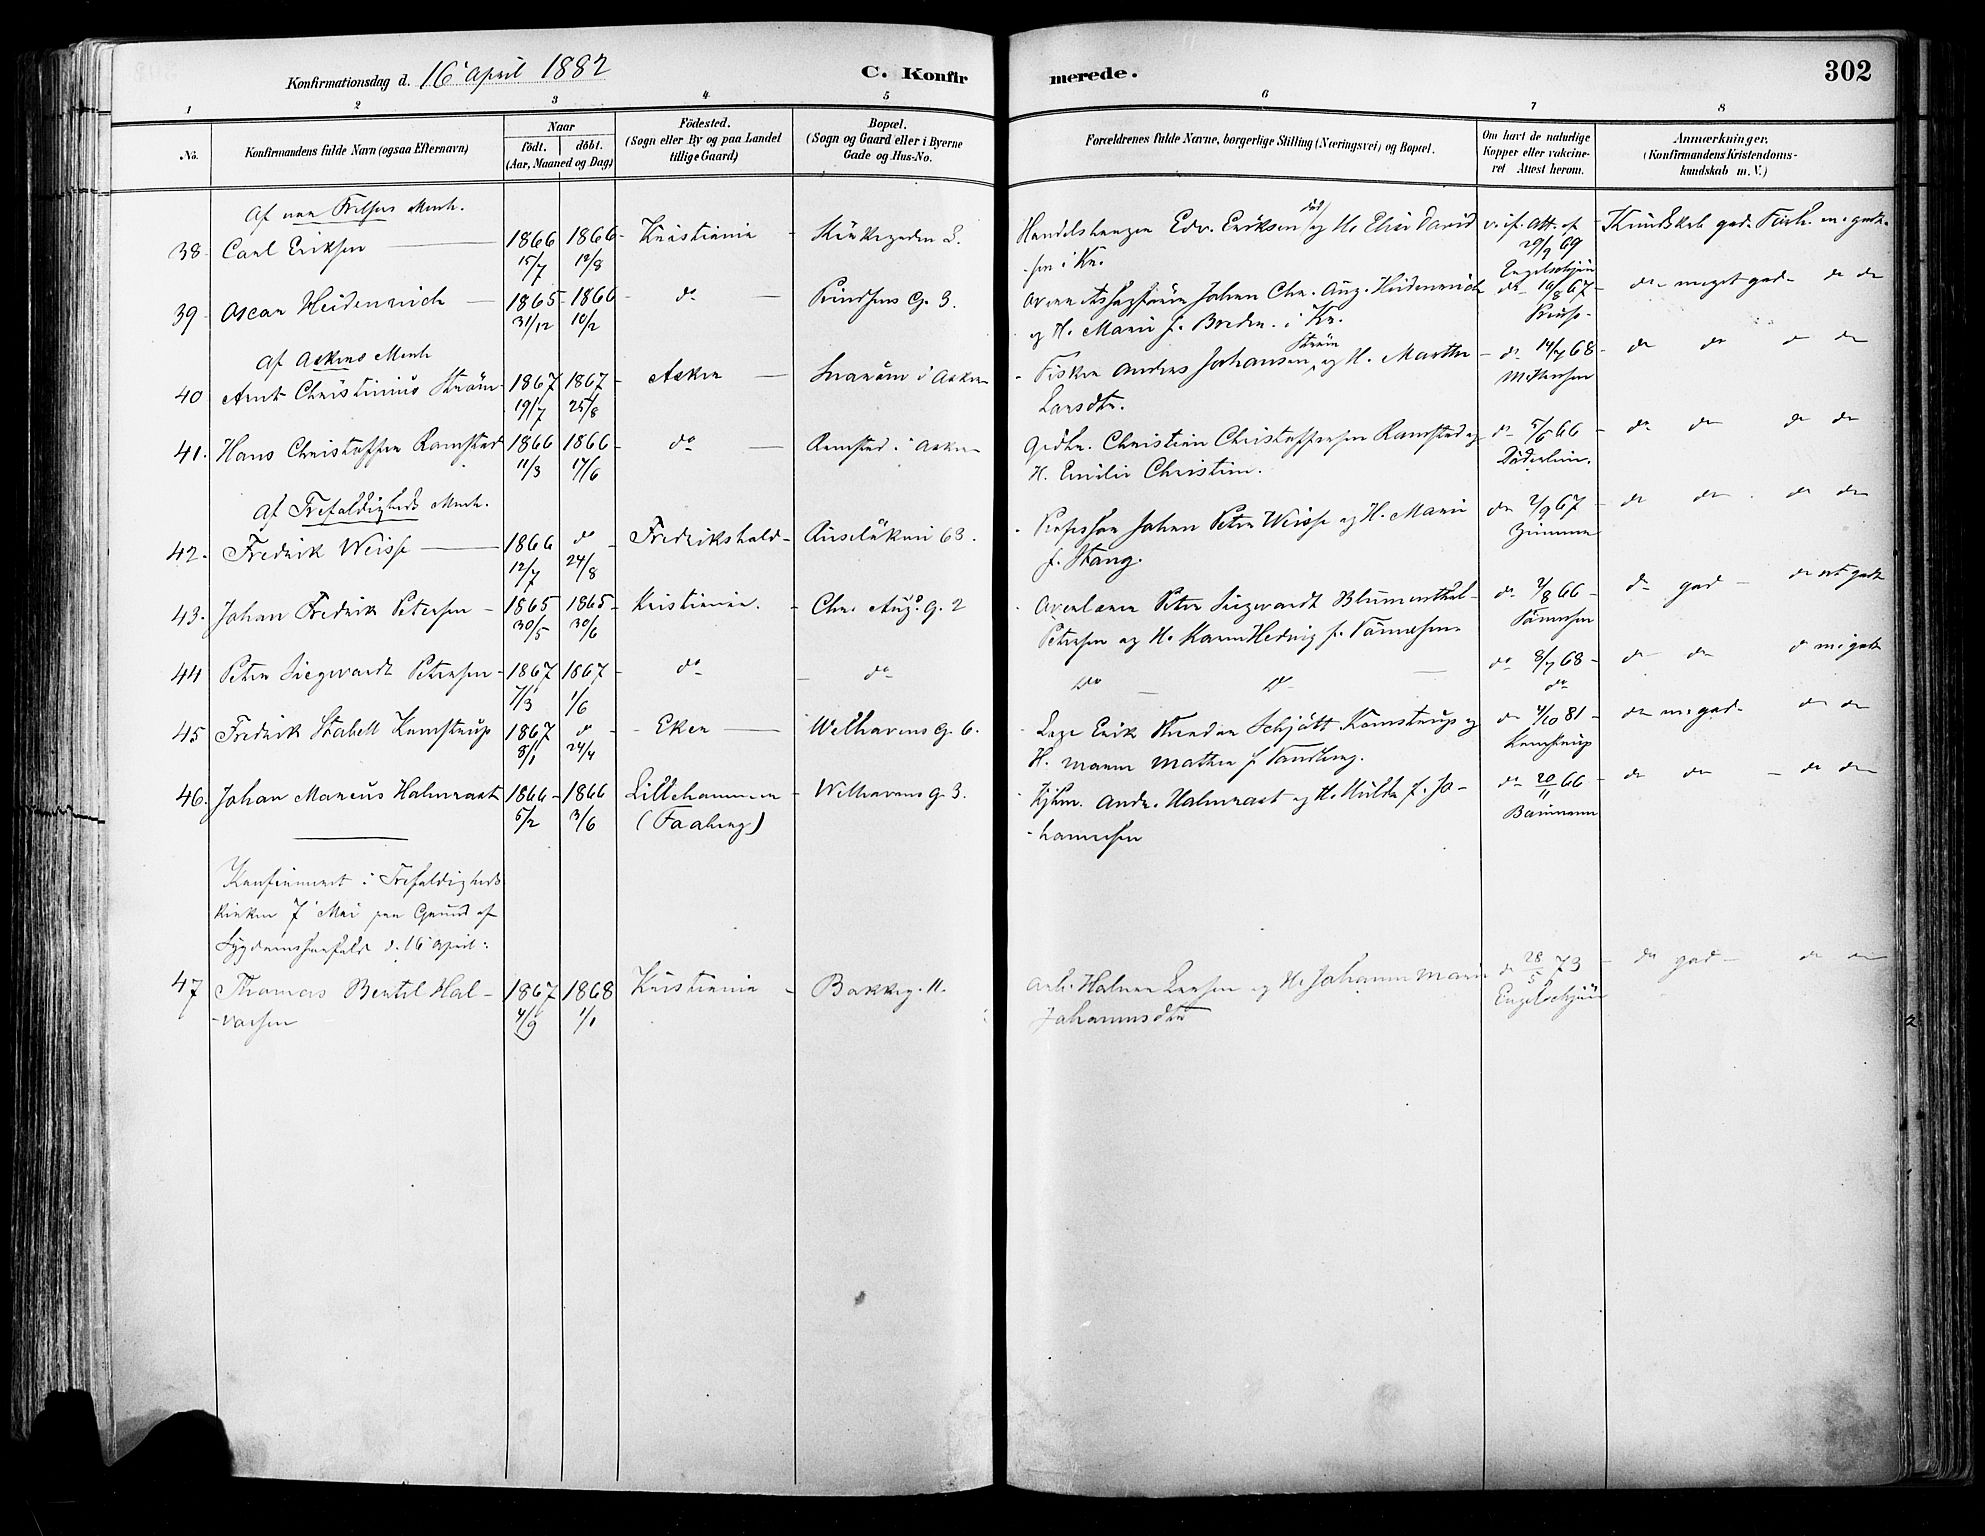 Konfirmationsdag d. 16 April 1882
C. Konfirmerede.
302
1 2 3 4 5 6 7 8
No.
Konfirmandens fulde Navn (ogsaa Efternavn)
Naar
født. døbt.
(Aar, Maaned og Dag)
Fødested.
(Sogn eller By og paa Landet
tillige Gaard)
Bopæl.
(Sogn og Gaard eller i Byerne
Gade og Hus-No.
Forældrenes fulde Navne, borgerlige Stilling (Næringsvei) og Bopæl.
Om havt de naturlige
Kopper eller vakcine-
ret Attest herom.
Anmærkninger.
(Konfirmandens Kristendoms-
kundskab m. V.)
Af Menh.
38. Carl Eriksen 1866 1866 Kristiania
15/7 12/8
Edv. Eriksen og H.
i Kr.
v. if. Att. af
29/9 69
Engelschjøn
Kundskab god.
39. Oscar Heidenreich 1865 1866 do Prindsens G. 3.
31/12 10/2
Johan Chr. Aug. Heidenreich
og H. Marie f. Breder i Kr.
do 10/8 67
do meget god do do
Af Askers Menh
40 Arnt Christinius Strøm 1867 1867 Asker Snarøen i Asker
19/7 25/8
Fisker Anders Johansen Strøm og H. Marthe
Larsdtr.
do 14/7 68 do do do do
41. Hans Christoffer Ramstad 1866 1866 do Ramstad i Asker
11/3 17/6
Gdbr. Christian Christoffersen Ramstad og
H. Emilie Christine.
do 5/6 66 do do do do
Af Trefoldigheds Menh.
42. Fredrik Weisse 1866 do Fredrikshald Ruseløkvei 63.
12/7 24/8
Professor Johan Peter Weisse og H. Marie
f. Stang.
do 2/9 67 do do do do
43. Johan Fredrik Petersen 1865 1865 Kristiania. Chr. Aug. G. 2
30/5 30/6
Peter Siegwardt Blumenthal
Petersen og H. Karen Hedvig f. Tønnesen.
do 2/8 66 do god
Tønnesen
44 Peter Siegwardt Petersen 1867 1867 do do
7/3 1/6
do do
do 8/7 68 do do
do
45 Fredrik Stabell Kamstrup 1867 do Eker Welhavens G. 6.
8/1 24/4
Erik Schjøtt Kamstrup og
H. Maren Mathea f. Sandberg.
do 4/10 81 do do do
Kamstrup
46. Johan Marcus Halmrast 1866 1866 Lillehammer Welhavens G. 3.
5/2 3/6 (Faaberg)
Kjbm. Andr. Halmrast og H. Hulda f. Jo-
hannesen
do 20/11 66 do do do do
Konfirmeret i Trefoldigheds
kirken 7 Mai paa Grund af
Sygdomsforfald d. 16 April:
47 Thomas Bertel Hal- 1867 1868 Kristiania Bakkeg. 11.
varsen 4/9 1/1
Arb. Halvor Larsen og H. Johanne Marie
Johannesdtr
do 28/5 73 do god do do
Engelschjøn